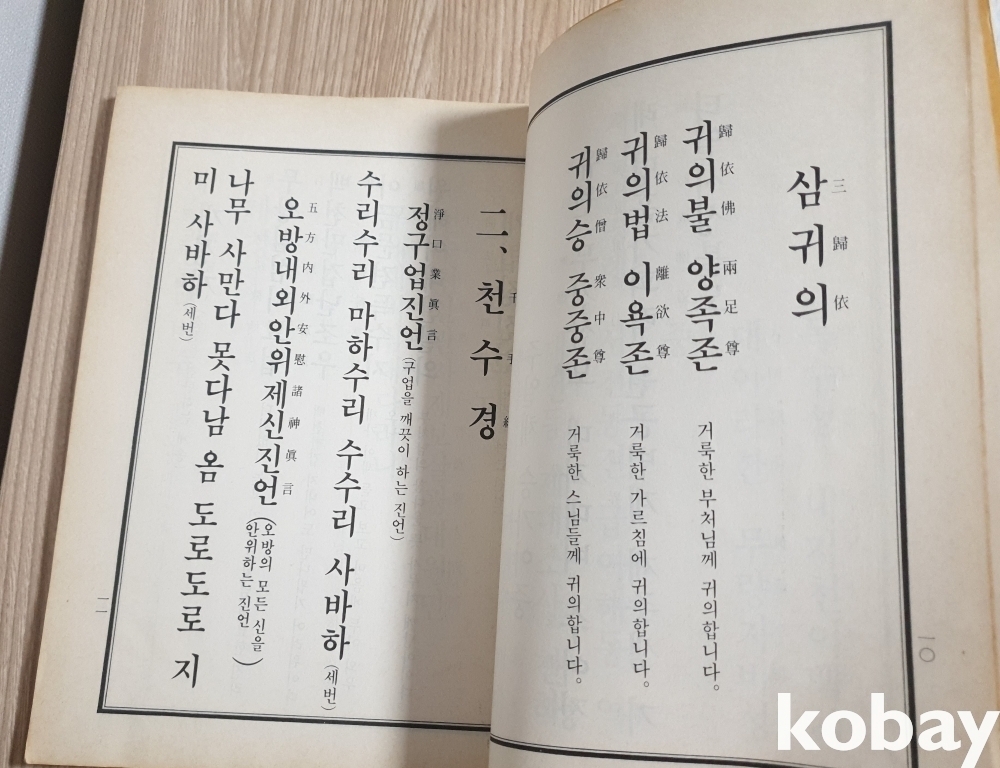 삼귀의
三歸依
귀의불 양족존
歸依佛 兩足尊
거룩한 부처님께 귀의합니다。
귀의법 이욕존
歸依法 離欲尊
거룩한 가르침에 귀의합니다。
귀의승 중중존
歸依僧 衆中尊
거룩한 스님들께 귀의합니다。
一〇
二、천수경
千手
정구업진언 (구업을 깨끗이 하는 진언)
淨口業眞言
수리수리 마하수리 수수리 사바하 (세번)
오방내외안위제신진언 (오방의 모든 신을
안위하는 진언)
五方內外安慰諸神眞言
나무 사만다 못다남 옴 도로도로 지
미 사바하 (세번)
一一
kobay